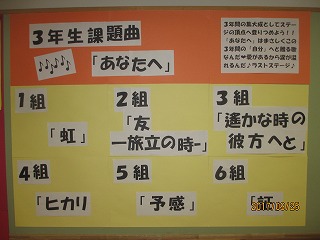 3年生課題曲
「あなたへ」
3年間の集大成としてステー
ジの頂点へ登りつめよう!!
「あなたへ」はまさしくこの
3年間の「自分」へと贈る歌
なんだ❤愛があるから涙が溢
れるんだ♪ラストステージ♪
1組
「虹」
2組
「友
―旅立の時―」
3組
「遙かな時の
彼方へと」
4組
「ヒカリ
5組
「予感」
6組
「証」